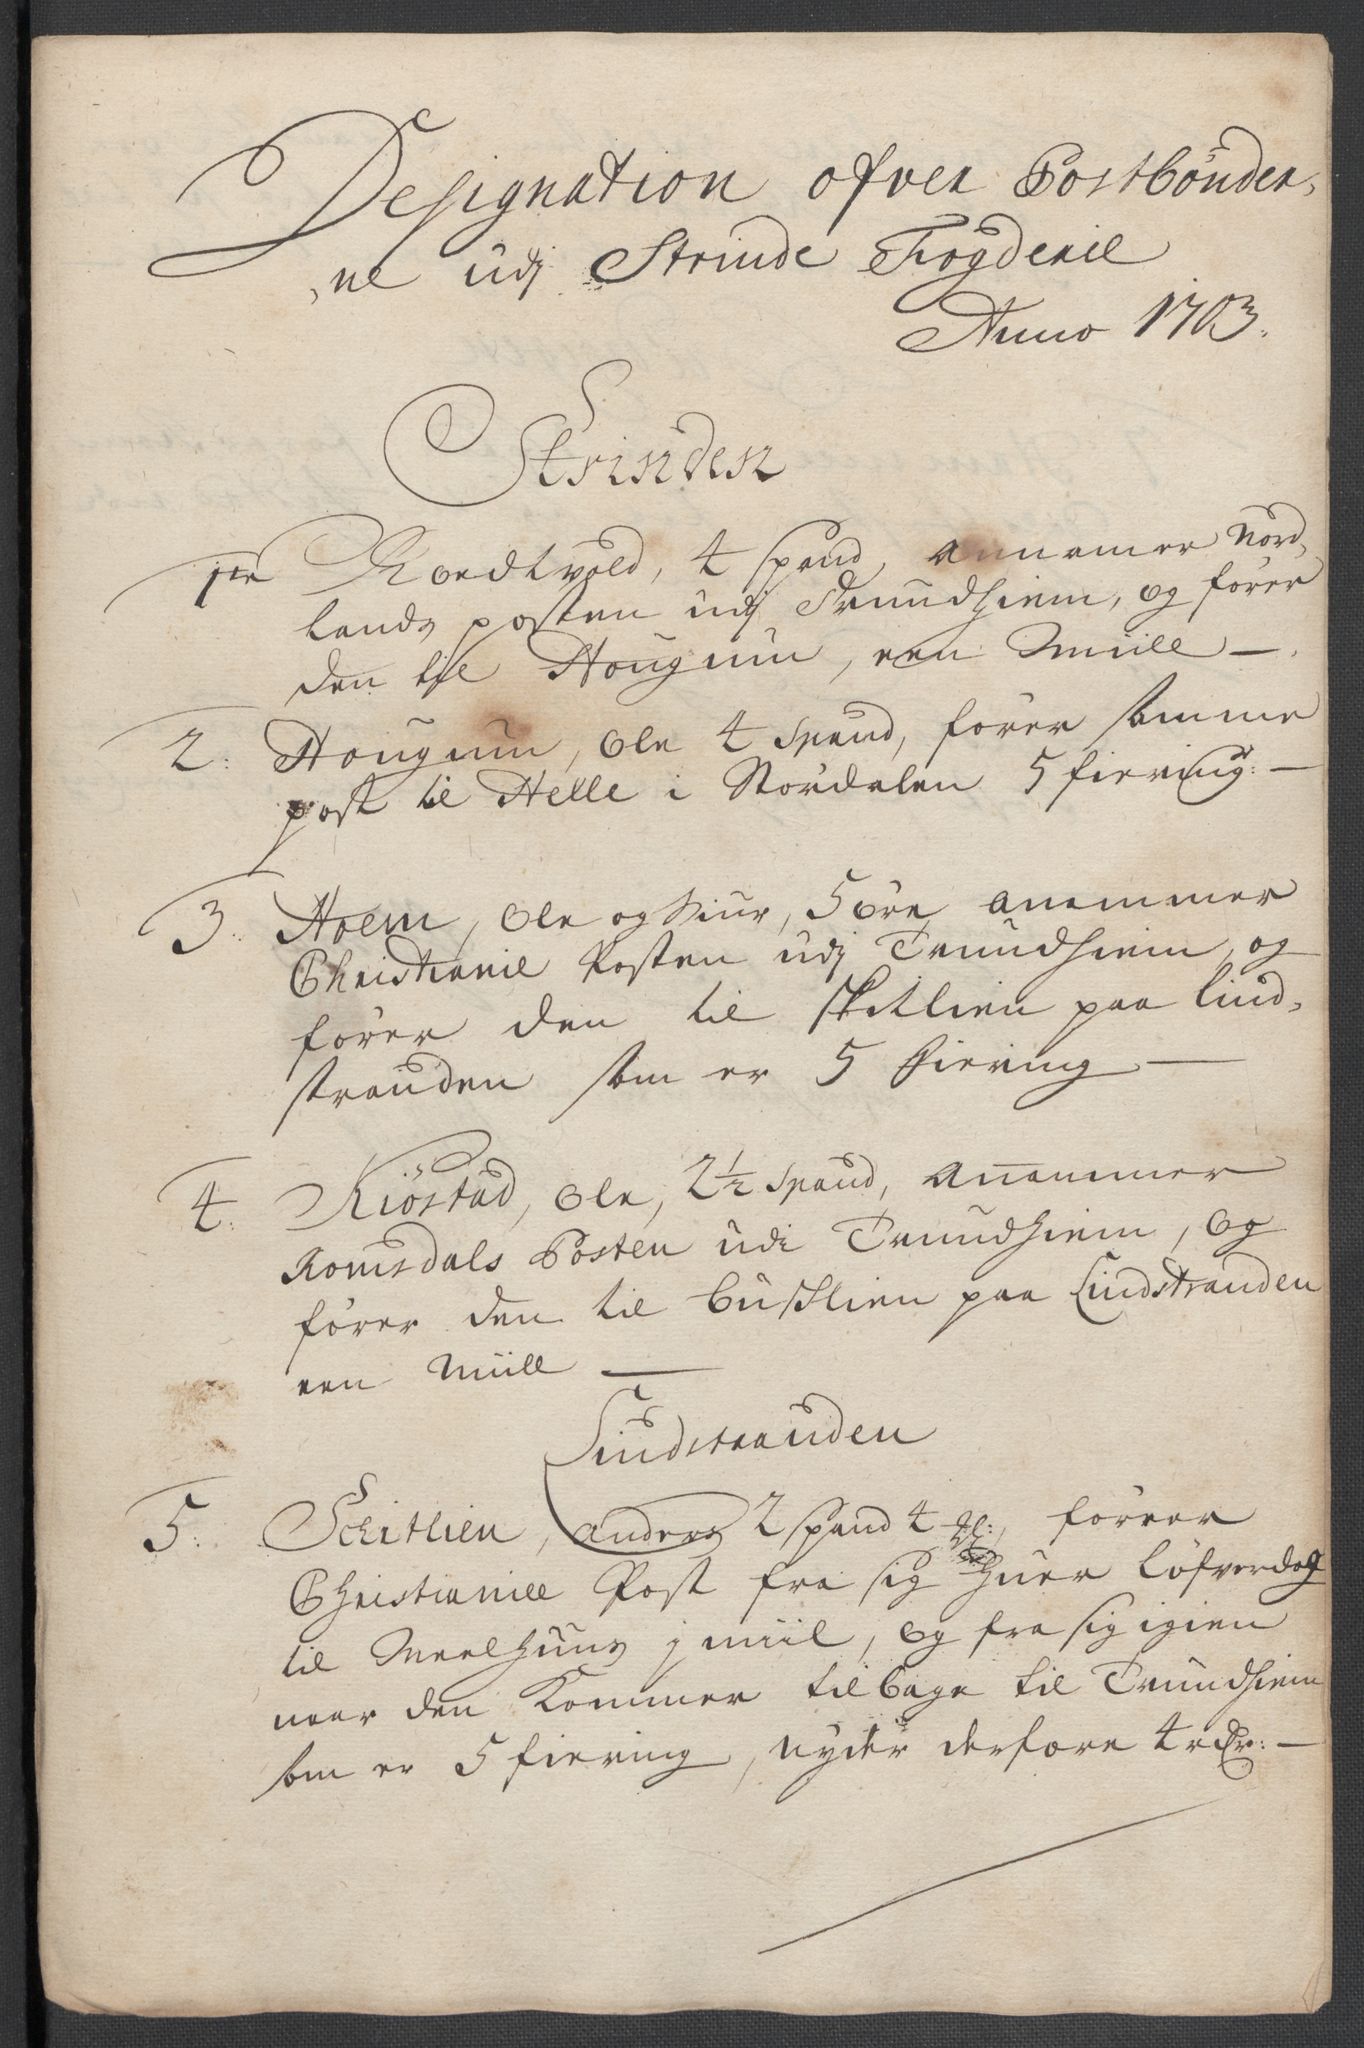 Designation ofver Postbönder,
,ne udj Strinde Fogderie
Anno 1703.
Strinden
1te Roedtvold, 4 spand, annamer Nord,
lands posten udj Trundhiem, og fører
den til Hougum, een Miille —.
2. Hougum, Ole 4 spand, fører samme
post til Helle i Stördalen 5 fiering: —
3. Hoem, Ole og Siur, 5 øre, anammer
Christianie Posten udj Trundhiem, og
fører den til Skitlien paa Lind,
stranden som er 5 fiering —
4. Kiöstad, Ole, 2½ spand, anammer
Romsdals Posten udi Trundhiem, og
fører den til Buschlien paa Lindstranden
een Miill —
Lindstranden
5. Schitlien, Anders 2 spand 4 fører
Christianiæ Post fra sig huer Løfverdag
til Meelhuus j miil, og fra sig igien
naar den kommer tilbage til Trundhiem
som er 5 fiering, nyder derfore 4 rdr: —